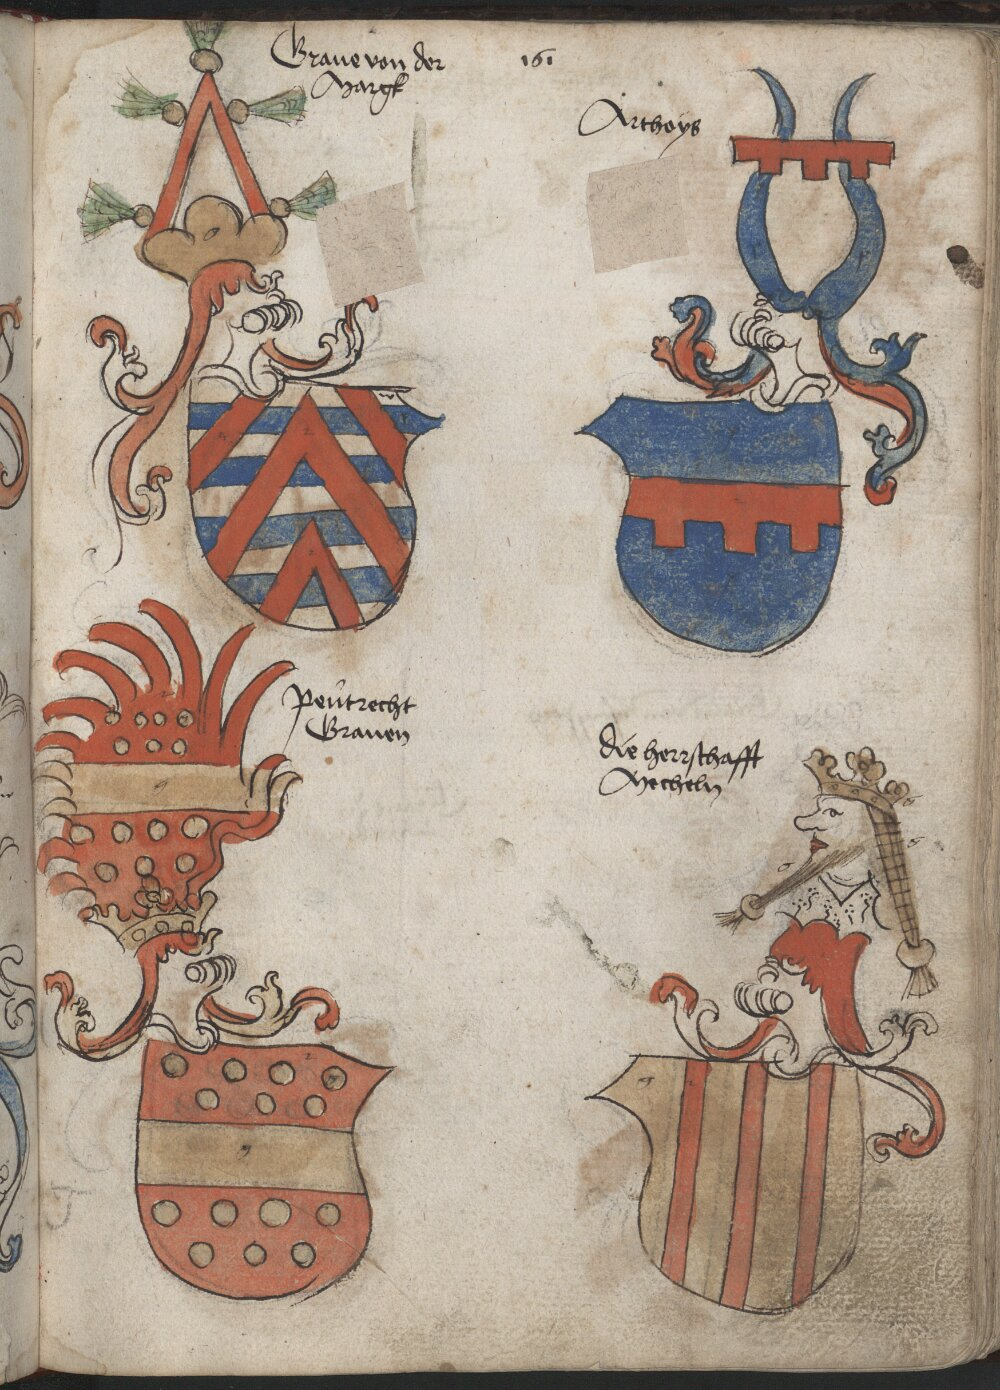 Graue von der
Margk
161
Arthoys
Peutrecht
Grauen
die herrschafft
Mecheln